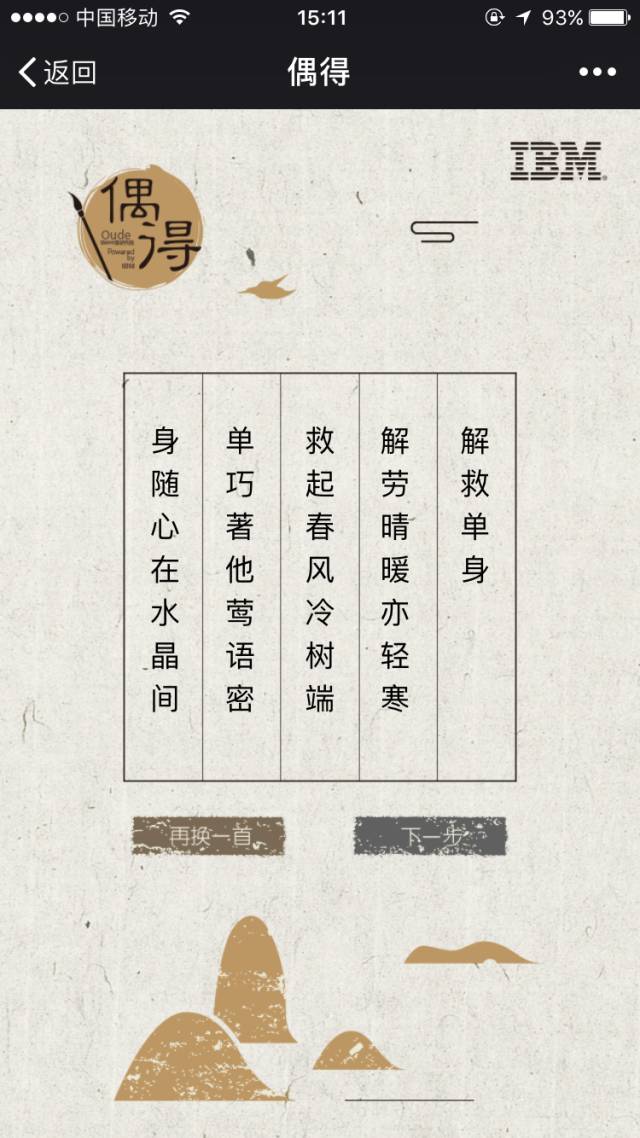 中国移动
15:11
93%
返回
偶得
IBM
偶得
Oude
Powered
by
解救单身
解劳晴暖亦轻寒
救起春风冷树端
单巧著他莺语密
身随心在水晶间
再换一首
下一步